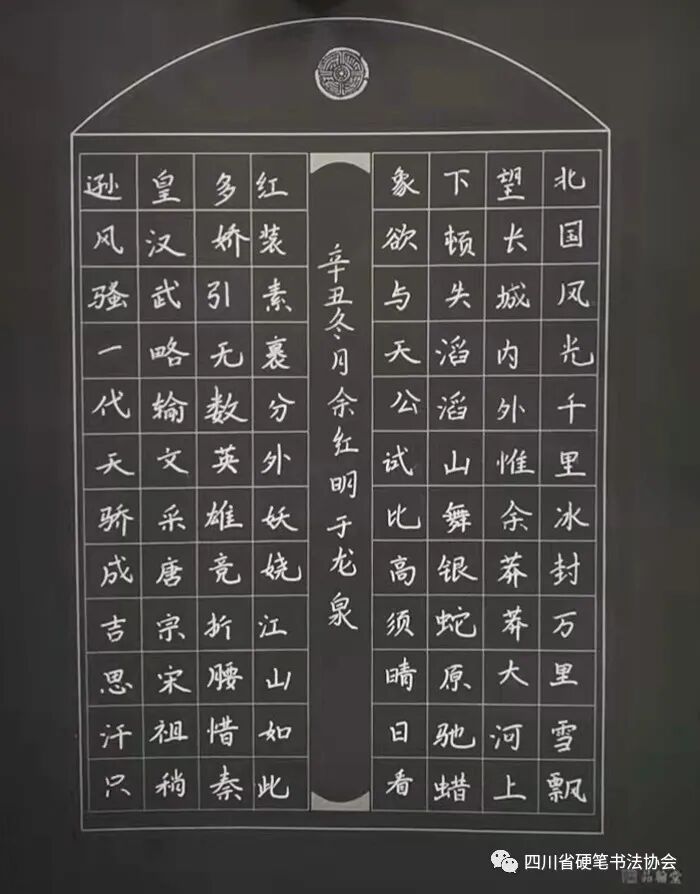 北国风光千里冰封万里雪飘
望长城内外惟余莽莽大河上
下顿失滔滔山舞银蛇原驰蜡
象欲与天公试比高须晴日看
辛丑冬月余红明于龙泉
红装素裹分外妖娆江山如此
多娇引无数英雄竞折腰惜秦
皇汉武略输文采唐宗宋祖稍
逊风骚一代天骄成吉思汗只
四川省硬笔书法协会